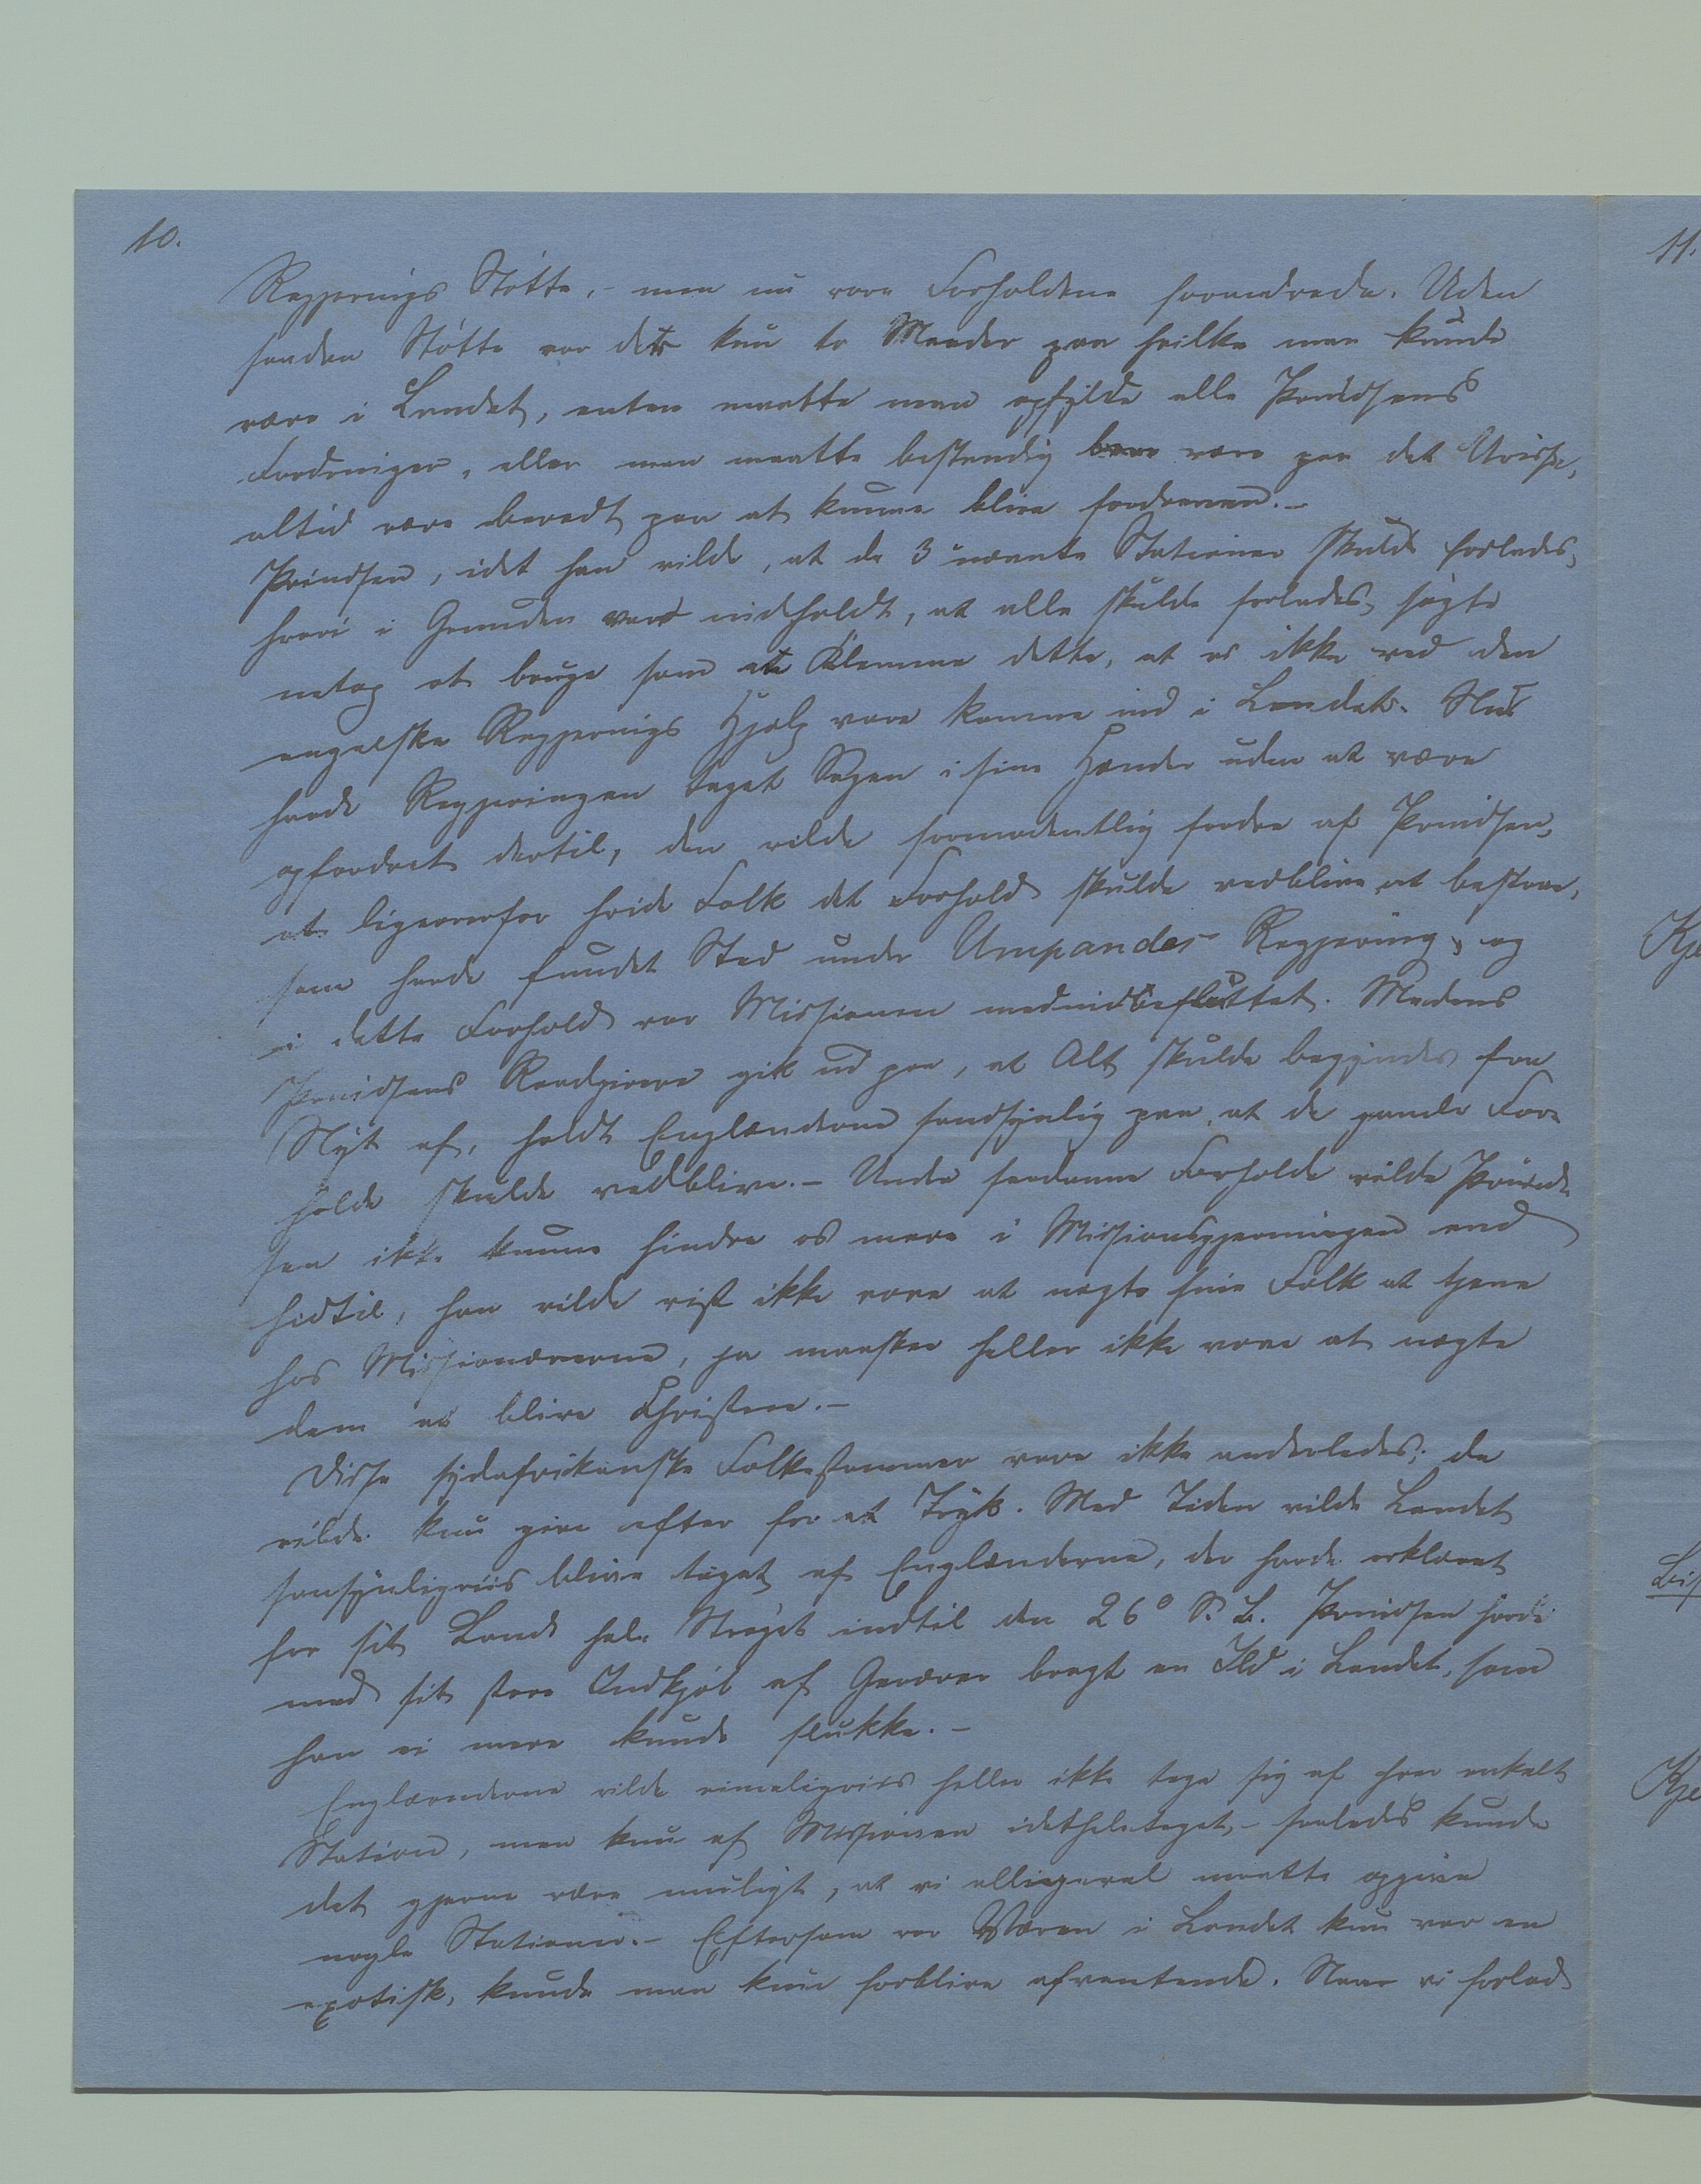 10.
Regjerings Støtte, - men nu vare Forholdene forandrede. Uden
saadan Støtte var der kun to Maader paa hvilke man kunde
være i Landet, enten maatte man opfylde alle Prindsens
Fordringer, eller man maatte bestandig være paa det Uvisse,
altid være beredt paa at kunne blive fordreven. -
Prindsen, idet han vilde, at de 3 nævnte Stationer skulde forlades,
hvori i Grunden var indholdt, at alle skulde forlades, søgte
netop at bruge som en Klemme dette, at vi ikke ved den
engelske Regjerings Hjælp vare komne ind i Landet. Nu
havde Regjeringen taget Sagen i sine Hænder uden at være
opfordret dertil, den vilde formodentlig fordre af Prindsen,
at ligeoverfor hvide Folk det Forhold skulde vedblive at bestaae,
som havde fundet Sted under Umpandes Regjering, og
i dette Forhold var Missionen medindbefattet. Medens
Prindsens Raadgivere gik ud paa, at Alt skulde begyndes fra
Nyt af, holdt Englænderne sandsynlig paa at de gamle For-
holde skulde vedblive. - Under saadanne Forholde vilde Prind-
sen ikke kunne hindre os mere i Missionsgjerningen end
hidtil, han vilde vist ikke vove at negte sine Folk at tjene
hos Missionærerne, ja maaskee heller ikke vove at nægte
dem at blive Christne. -
Disse sydafrikanske Folkestammer vare ikke anderledes; de
vilde kun give efter for et Tryk. Med Tiden vilde Landet
sansynligviis blive taget af Englænderne, der havde erklæret
for sit Land hele Strøget indtil den 26° S. B. Prindsen havde
med sit store Indkjøb af Geværer bragt en Ild i Landet, som
han ei mere kunde slukke. -
Englænderne vilde rimeligviis heller ikke tage sig af hver enkelt
Station, men kun af Missionen idetheletaget, - saaledes kunde
det gjerne være muligt, at vi alligevel maatte opgive
nogle Stationer. - Eftersom vor Væren i Landet kun var en
exotisk, kunde man kun forblive afventende. Naar vi forlod
11.